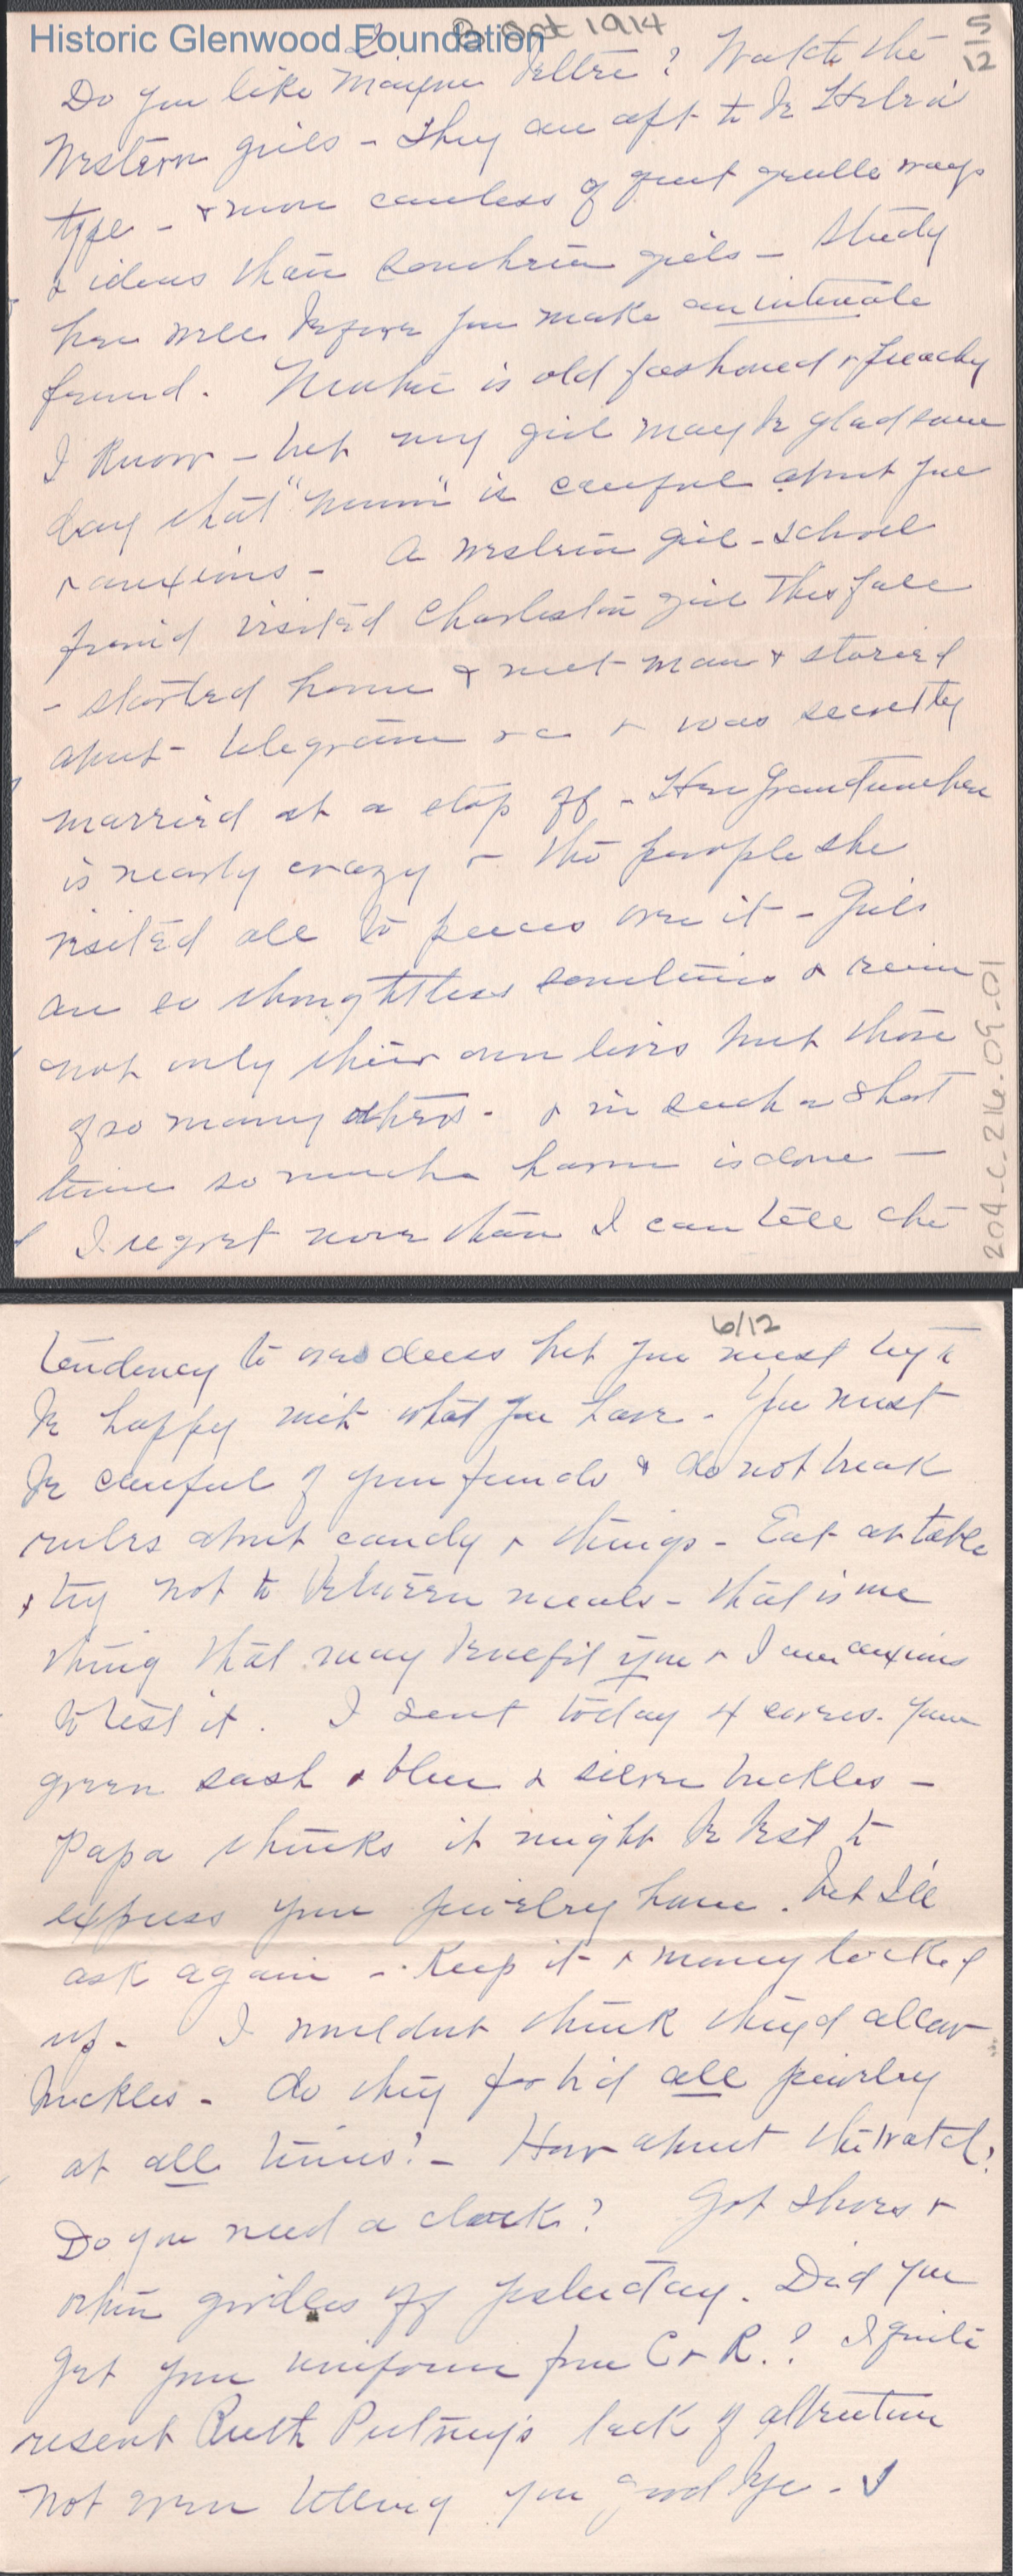 Historic Glenwood Foundation
8 Oct 1914
5/12
2
Do you like Mayme ? Watch the
Western girls - They are apt to be Helen's
type - & more careless of quiet gentle ways
& ideas than Southern girls - Study
her well before you make an intimate
friend. is old fashioned & preachy
I know - but my girl may be glad some
day that "mum" is careful about you
& anxious - A western girl - school
friend visited Charleston girl this fall
- started home & met man & storied
about telegram &c & was secretly
married at a stop off - Her Grandmother
is nearly crazy & the people she
visited all to pieces over it - Girls
are so thoughtless sometimes & ruin
not only their own lives but those
of so many others - & in such a short
time so much harm is done -
I regret more than I can tell the
204_c_216.09.01
6/12
tendency to overdress but you must try to
be happy with what you have - You must
be careful of your funds & do not break
rules about candy & things - Eat at table
& try not to between meals - that is one
thing that may benefit you & I am anxious
to test it. I sent today 4 covers. your
green sash & blue & silver buckles -
Papa thinks it might be best to
express your jewelry home. but I'll
ask again - Keep it & money locked
up - I wouldnt think they'd allow
buckles - do they forbid all jewelry
at all times? - How about the watch?
Do you need a clock? Got shoes &
other girdles off yesterday. Did you
get your uniform from C & R.? I quite
resent Ruth Putney's lack of attention
not even telling you good bye - I